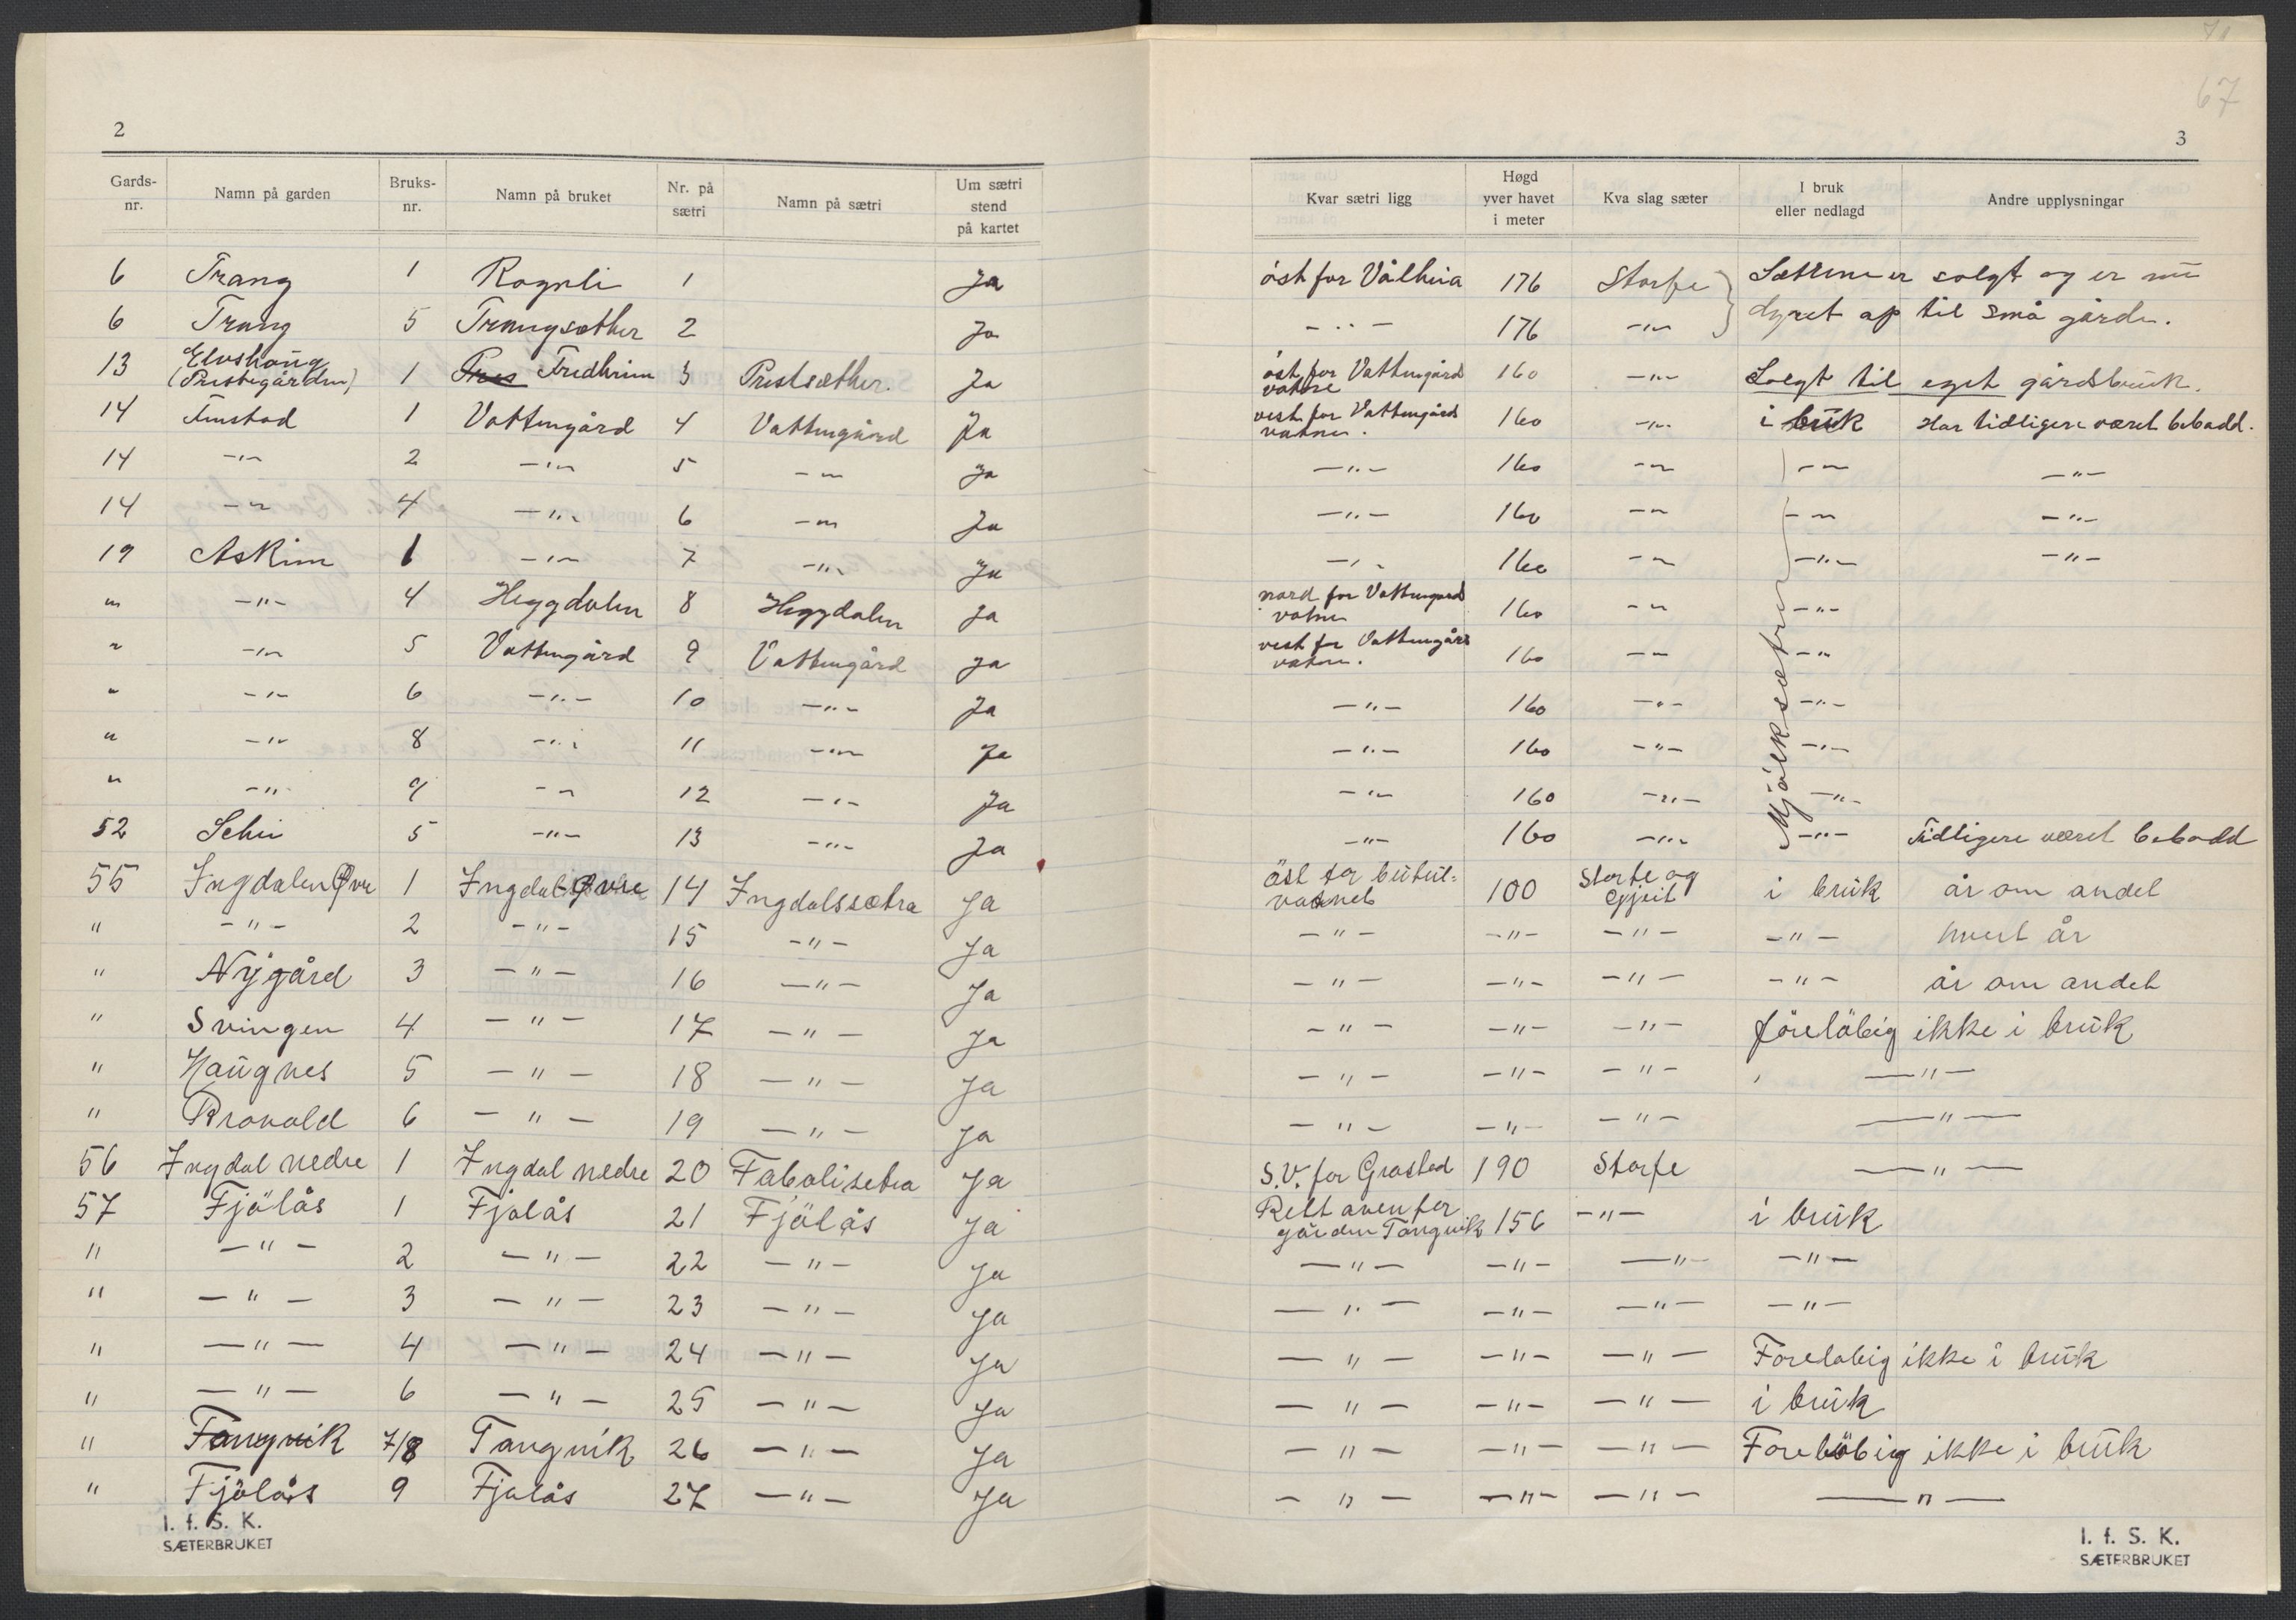 2
Gards-nr. Namn på garden Bruks-nr. Namn på bruket Nr. på sætri Namn på sætri Um sætri stend på kartet
6 Trang 1 Rognli 1 Ja
6 Trang 5 Trangsæther 2 Ja
13 Elvshaüg (Prestegården) 1 Pres Fredheim 3 Prestsæther. Ja
14 Finstad 1 Vattengård 4 Vattengård Ja
14 -"- 2 -"- 5 -"- Ja
14 -"- 4 -"- 6 -"- Ja
19 Askim 1 -"- 7 -"- Ja
" -"- 4 Heggdalen 8 Heggdalen Ja
" -"- 5 Vattengård 9 Vattengård Ja
" -"- 6 -"- 10 -"- Ja
" -"- 8 -"- 11 -"- Ja
" -"- 9 -"- 12 -"- Ja
52 Selvi 5 -"- 13 -"- Ja
55 Ingdalen Øvre 1 Ingdal Øvre 14 Ingdalssætra Ja
" -"- 2 -"- 15 -"- Ja
" Nygård 3 -"- 16 -"- Ja
" Svingen 4 -"- 17 -"- Ja
" Haügnes 5 -"- 18 -"- Ja
" Bravold 6 -"- 19 -"- Ja
56 Ingdal nedre 1 Ingdal nedre 20 Fabalisetra Ja
57 Fjölås 1 Fjølås 21 Fjölås Ja
" -"- 2 -"- 22 -"- Ja
" -"- 3 -"- 23 -"- Ja
" -"- 4 -"- 24 -"- Ja
" -"- 6 -"- 25 -"- Ja
" Tangvik 7/8 Tangvik 26 -"- Ja
" Fjölås 9 Fjølås 27 -"- Ja
I. f. S. K.
SÆTERBRUKET
67
3
Kvar sætri ligg Høgd yver havet i meter Kva slag sæter I bruk eller nedlagd Andre upplysningar
öst for Vålheia 176 Storfe Sættrene er solgt og er nü
-"- 176 -"- dyrket op til små gårde.
öst for Vattengård vatnet 160 -"- Solgt til eget gårdsbrük.
vest for Vattengård vatnet. 160 -"- i brük Har tidligere været bebodd.
-"- 160 -"- -"- -"-
-"- 160 -"- -"- -"-
-"- 160 -"- -"- -"-
nord for Vattengård vatnet 160 -"- -"-
vest for Vattengård vatnet. 160 -"- -"-
-"- 160 -"- -"-
-"- 160 -"- -"-
-"- 160 -"- -"-
-"- 160 -"- -"- Tidligere været bebodd
Mjölksætrer
öst for bütül-vatnet 100 Storfe og gjeit i brük år om andet
-"- -"- -"- -"- hvert år
-"- -"- -"- -"- år om andet
-"- -"- -"- föreløbig ikke i brük
-"- -"- -"- -"-
-"- -"- -"- -"-
S.V. for Grostad 190 Storfe -"-
Rett oven for gården Tangvik 156 -"- i brük
-"- -"- -"- -"-
-"- -"- -"- -"-
-"- -"- -"- Foreløbig ikke i brük
-"- -"- -"- i brük
-"- -"- -"- Forelöbig ikke i brük
-"- -"- -"- -"-
I. f. S. K.
SÆTERBRUKET